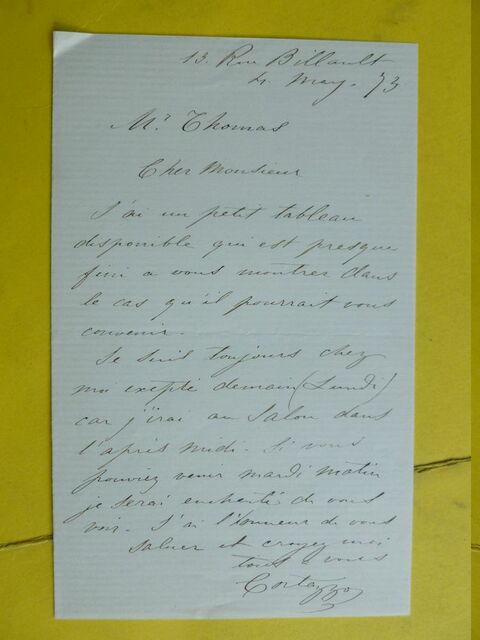 13. Rue Billault
4. May. 73
Mr Thomas
Cher Monsieur
J'ai un petit tableau
disponible qui est presque
fini a vous montrer dans
le cas qu'il pourrait vous
convenir.
Je suis toujours chez
moi exepté demain (Lundi)
car j'irai au Salon dans
l'après midi. Si vous
pouviez venir mardi matin
je serai enchanté de vous
voir. J'ai l'honneur de vous
saluer et croyez moi
tout a vous
Cortazzo